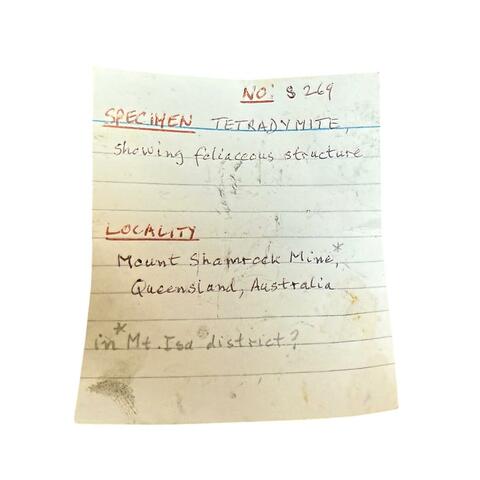 NO: S 269
SPECIMEN TETRADYMITE,
Showing foliaceous structure
LOCALITY
Mount Shamrock Mine,*
Queensland, Australia
in *Mt. Isa district?